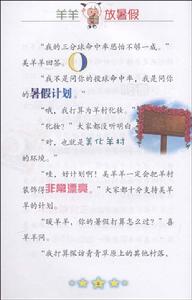 羊羊放暑假
“我的三分球命中率恐怕不够一成。”
美羊羊回答。
“我不是问你的投球命中率，我是问你
的暑假计划。”
“哦，我打算为羊村化妆。”
“化妆？”大家都没听明白
“对，也就是美化羊村
的环境。”
“哇，好计划啊！美羊羊一定会把羊村
装饰得非常漂亮。”大家都十分支持美羊
羊的计划。
“暖羊羊，你的暑假打算怎么过？”喜
羊羊问。
“我打算探访青青草原上的其他村落，